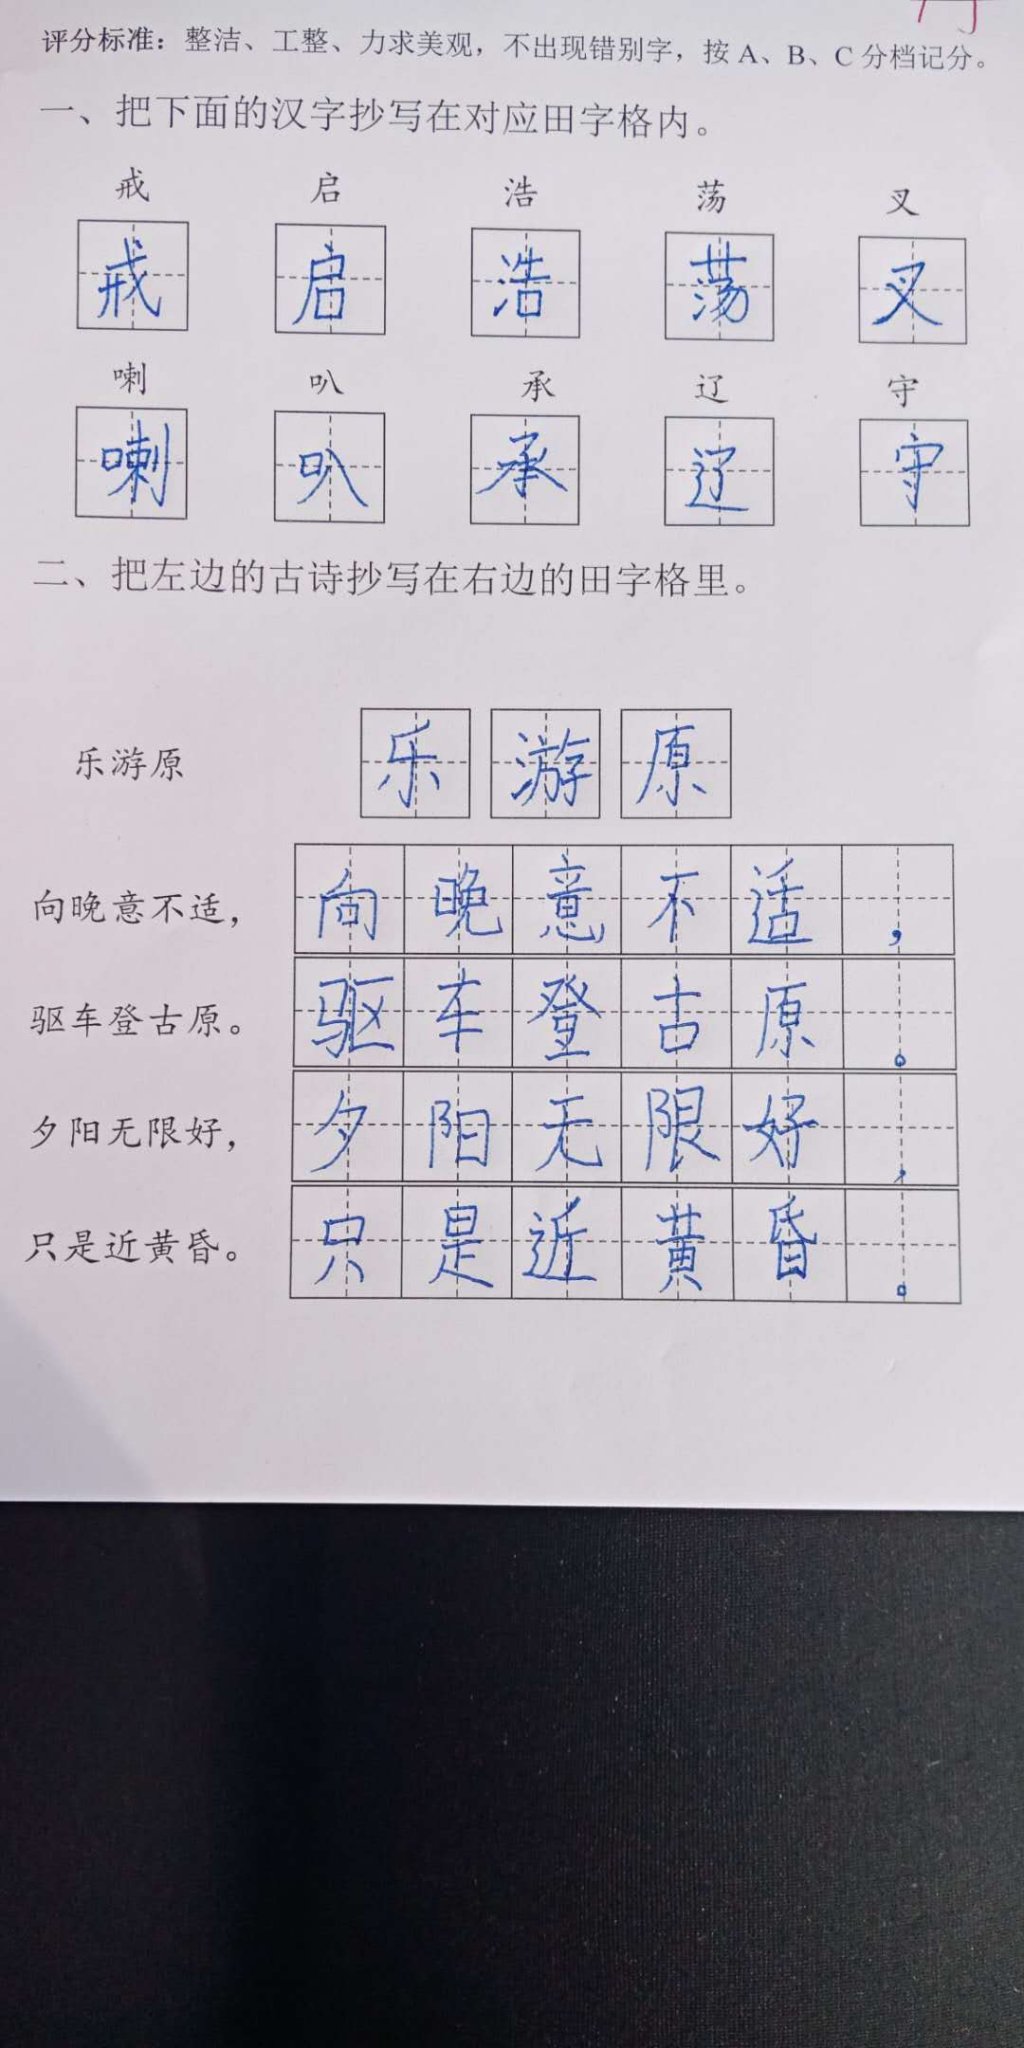 评分标准：整洁、工整、力求美观，不出现错别字，按 A、B、C 分档记分。
一、把下面的汉字抄写在对应田字格内。
戒 启 浩 荡 叉
戒 启 浩 荡 叉
喇 叭 承 辽 守
喇 叭 承 辽 守
二、把左边的古诗抄写在右边的田字格里。
乐游原 乐游原
向晚意不适， 向晚意不适，
驱车登古原。 驱车登古原。
夕阳无限好， 夕阳无限好，
只是近黄昏。 只是近黄昏。